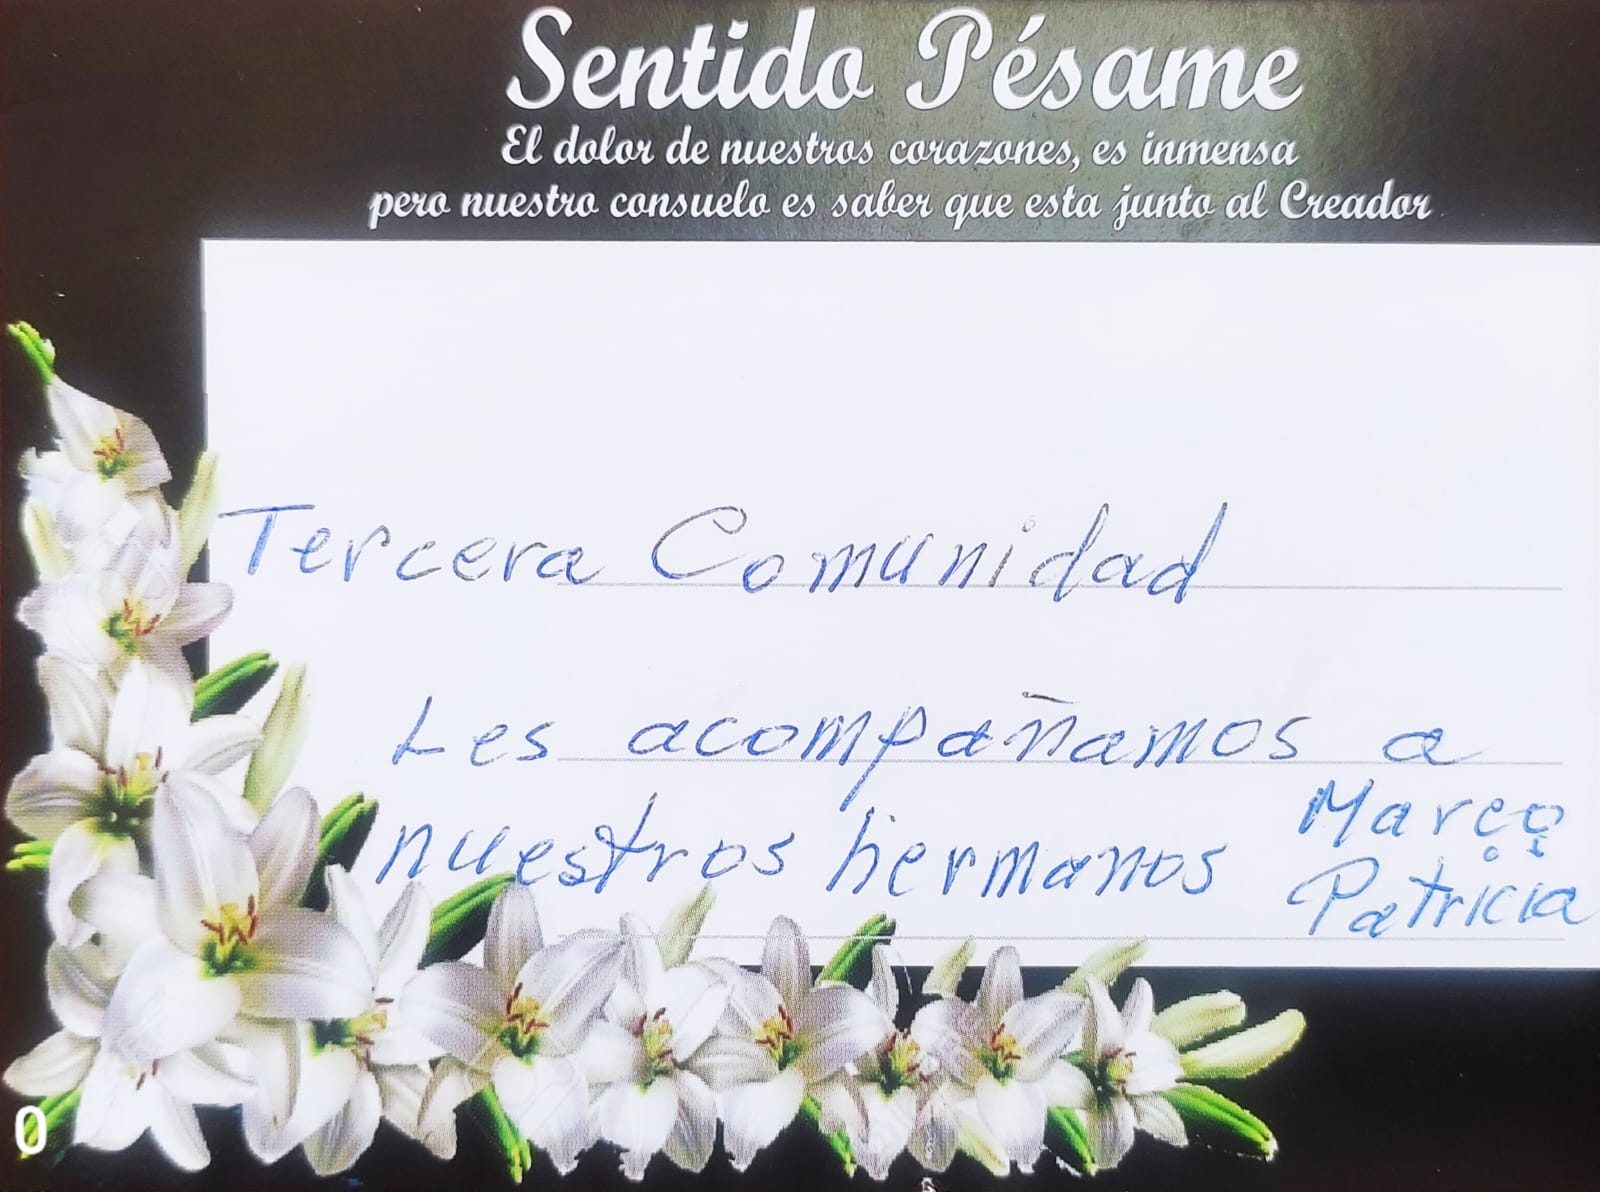 Sentido Pésame
El dolor de nuestros corazones, es inmensa
pero nuestro consuelo es saber que esta junto al Creador
Tercera Comunidad
Les acompañamos a
nuestros hermanos Marco
Patricia
0